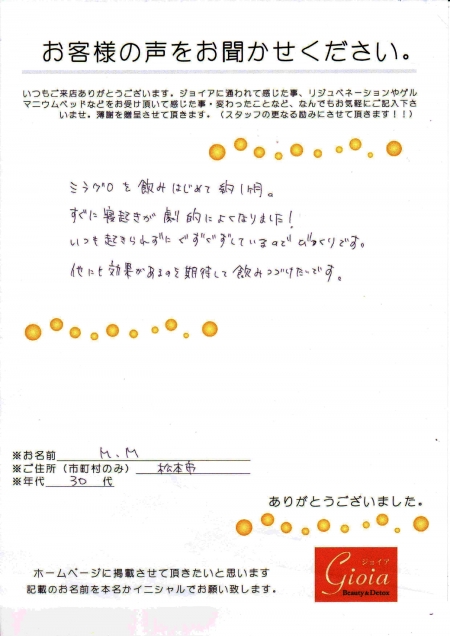 お客様の声をお聞かせください。
いつもご来店ありがとうございます。ジョイアに通われて感じた事、リジュベネーションやゲル
マニウムベッドなどをお受け頂いて感じた事・変わったことなど、なんでもお気軽にご記入下
さいませ。薄謝を贈呈させて頂きます。（スタッフの更なる励みにさせて頂きます！！）
ミラグロを飲みはじめて約1ヶ月。
すぐに寝起きが劇的によくなりました!
いつも起きられずにぐずぐずしているのでびっくりです。
他にも効果があるのを期待して飲みつづけたいです。
※お名前 M.M
※ご住所（市町村のみ） 松本市
※年代 30 代
ありがとうございました。
ホームページに掲載させて頂きたいと思います
記載のお名前を本名かイニシャルでお願い致します。
ジョイア
Gioia
Beauty&Detox